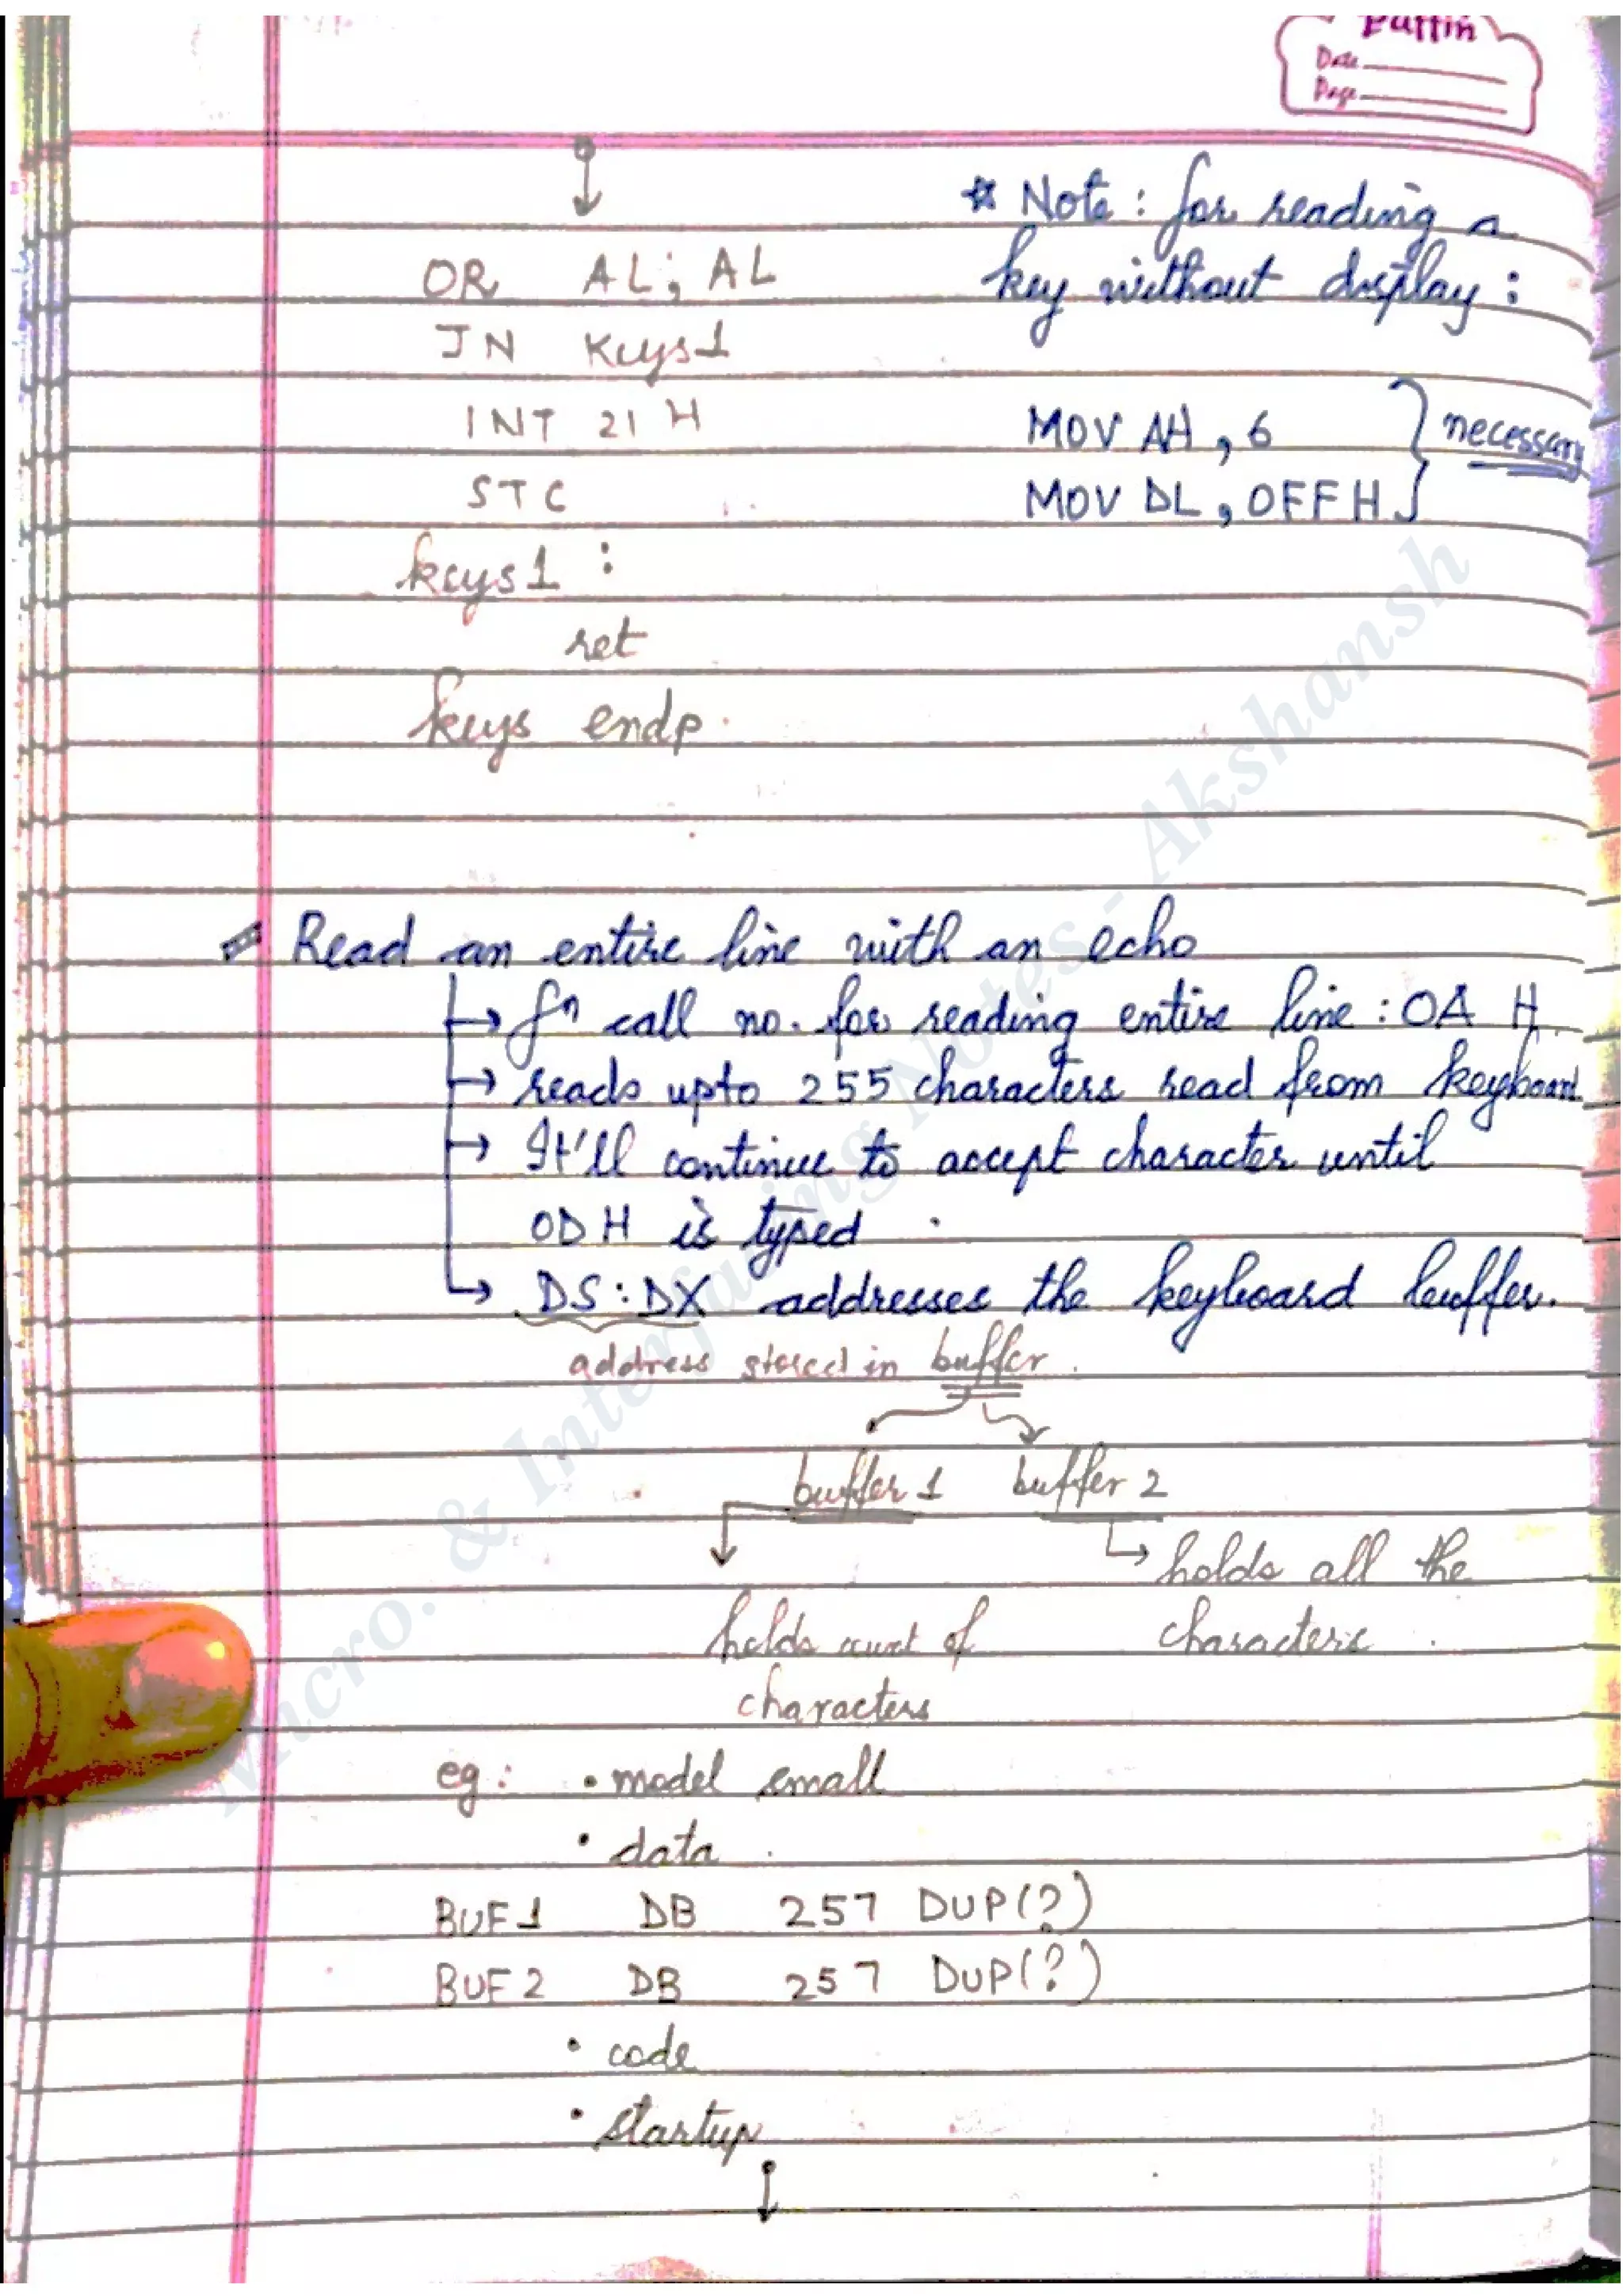 Puffin
Date
Page
* Note: for reading a
key without display:
OR AL, AL
JN Keys1
INT 21 H
STC
MOV AH, 6
MOV DL, 0FFH
necessary
keys1 :
ret
keys endp.
Read an entire line with an echo
→ fn call no. for reading entire line : 0A H.
→ reads upto 255 characters read from keyboard.
→ It'll continue to accept character until
0D H is typed.
→ DS:DX addresses the keyboard buffer.
address stored in buffer.
buffer 1 buffer 2
↳ holds all the
holds count of characters.
characters
eg: .model small
.data
BUF1 DB 257 DUP(?)
BUF2 DB 257 DUP(?)
.code
.startup
Micro. & Interfacing Notes - Akshansh